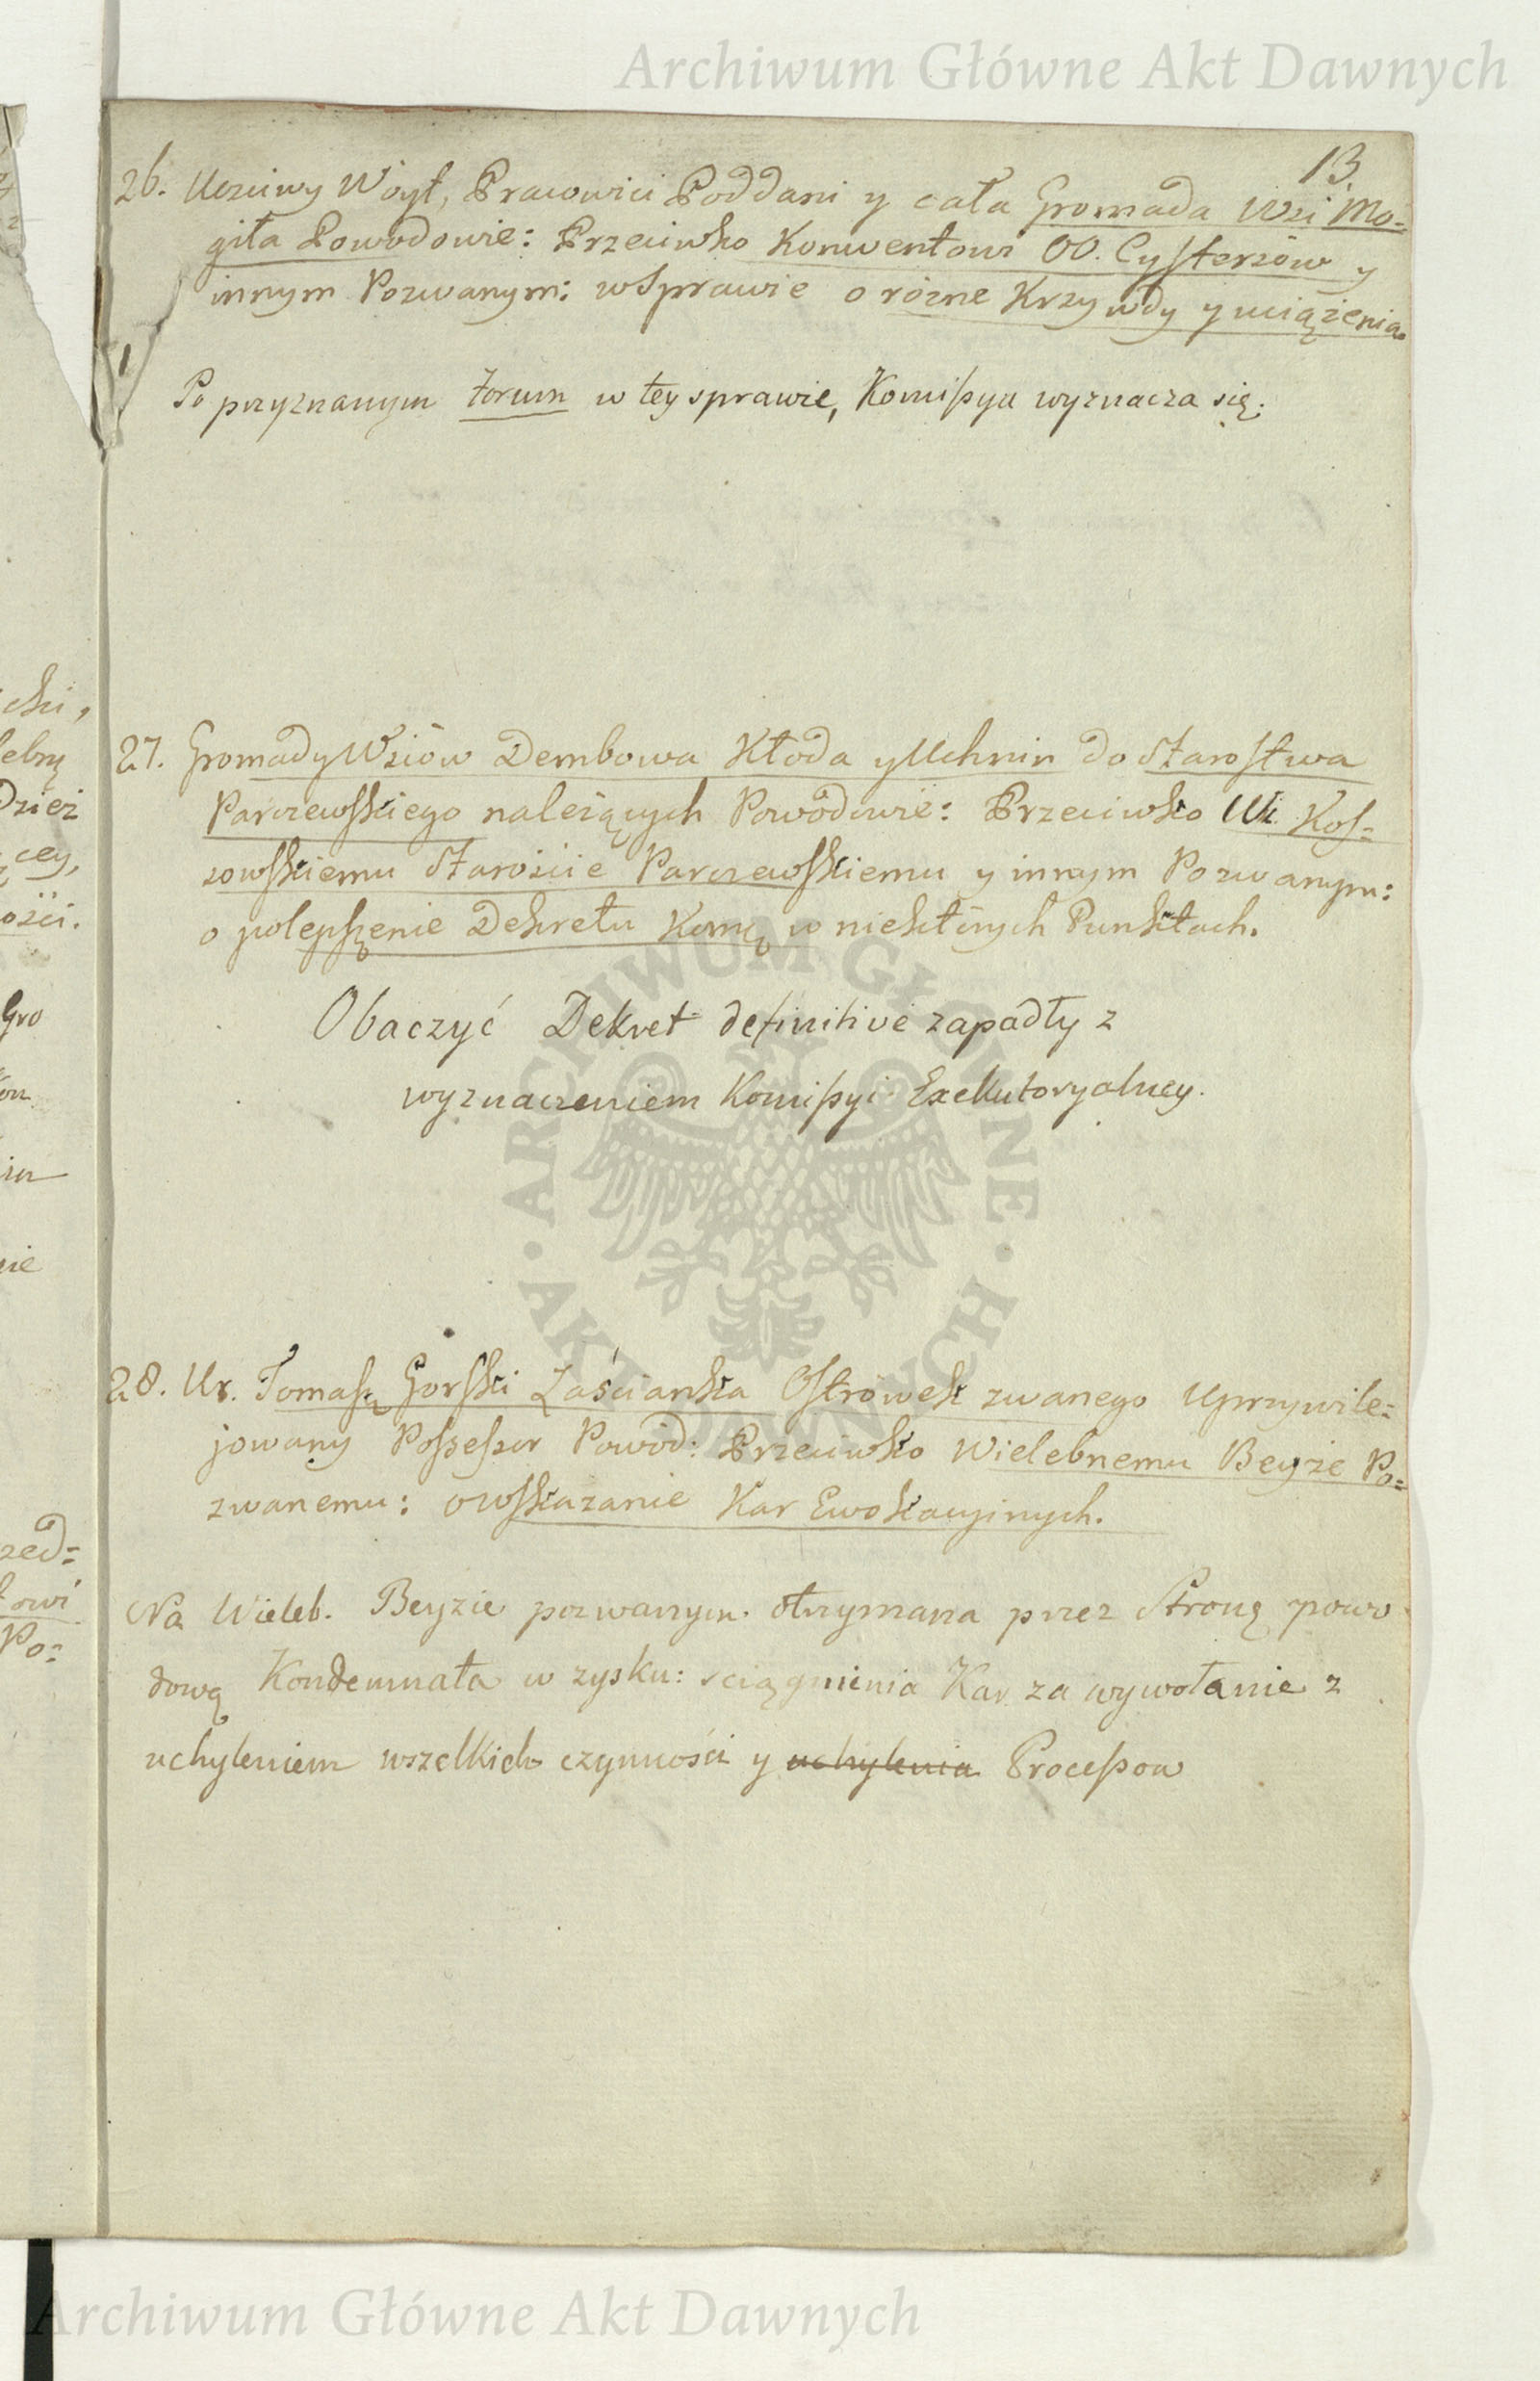 Archiwum Główne Akt Dawnych
13.
26. Uczciwy Woyt, Pracowici Poddani y cała Gromada Wsi Mo=
giła Powodowie: Przeciwko Konwentowi OO. Cystersów y
innym Pozwanym: w Sprawie o rózne Krzywdy y uciążenia.
Po przyznanym forum w tey sprawie, Komißya wyznacza się.
27. Gromady Wsiów Dembowa Kłoda y Uchnin do Starostwa
Parczewskiego należących Powodowie: Przeciwko Ur. Kos=
sowskiemu Starościе Parczewskiemu y innym Pozwanym:
o polepszenie Dekretu Kommis. w niektórych Punktach.
Obaczyć Dekret definitive zapadły z
wyznaczeniem Komißyi Exekutoryalney.
28. Ur. Tomasz Gorski Zaścianka Ostrówek zwanego Uprzywile=
jowany Poßeßor Powód: Przeciwko Wielebnemu Beyże Po=
zwanemu: o wskazanie Kar Ewokacyinych.
Na Wieleb. Beyzie pozwanym. otrzymana przez Stronę powo
dową Kondemnata w zysku: sciągnienia Kar za wywołanie z
uchyleniem wszelkich czynności y uchylenia Proceßow
ARCHIWUM GŁÓWNE · AKT DAWNYCH ·
Archiwum Główne Akt Dawnych